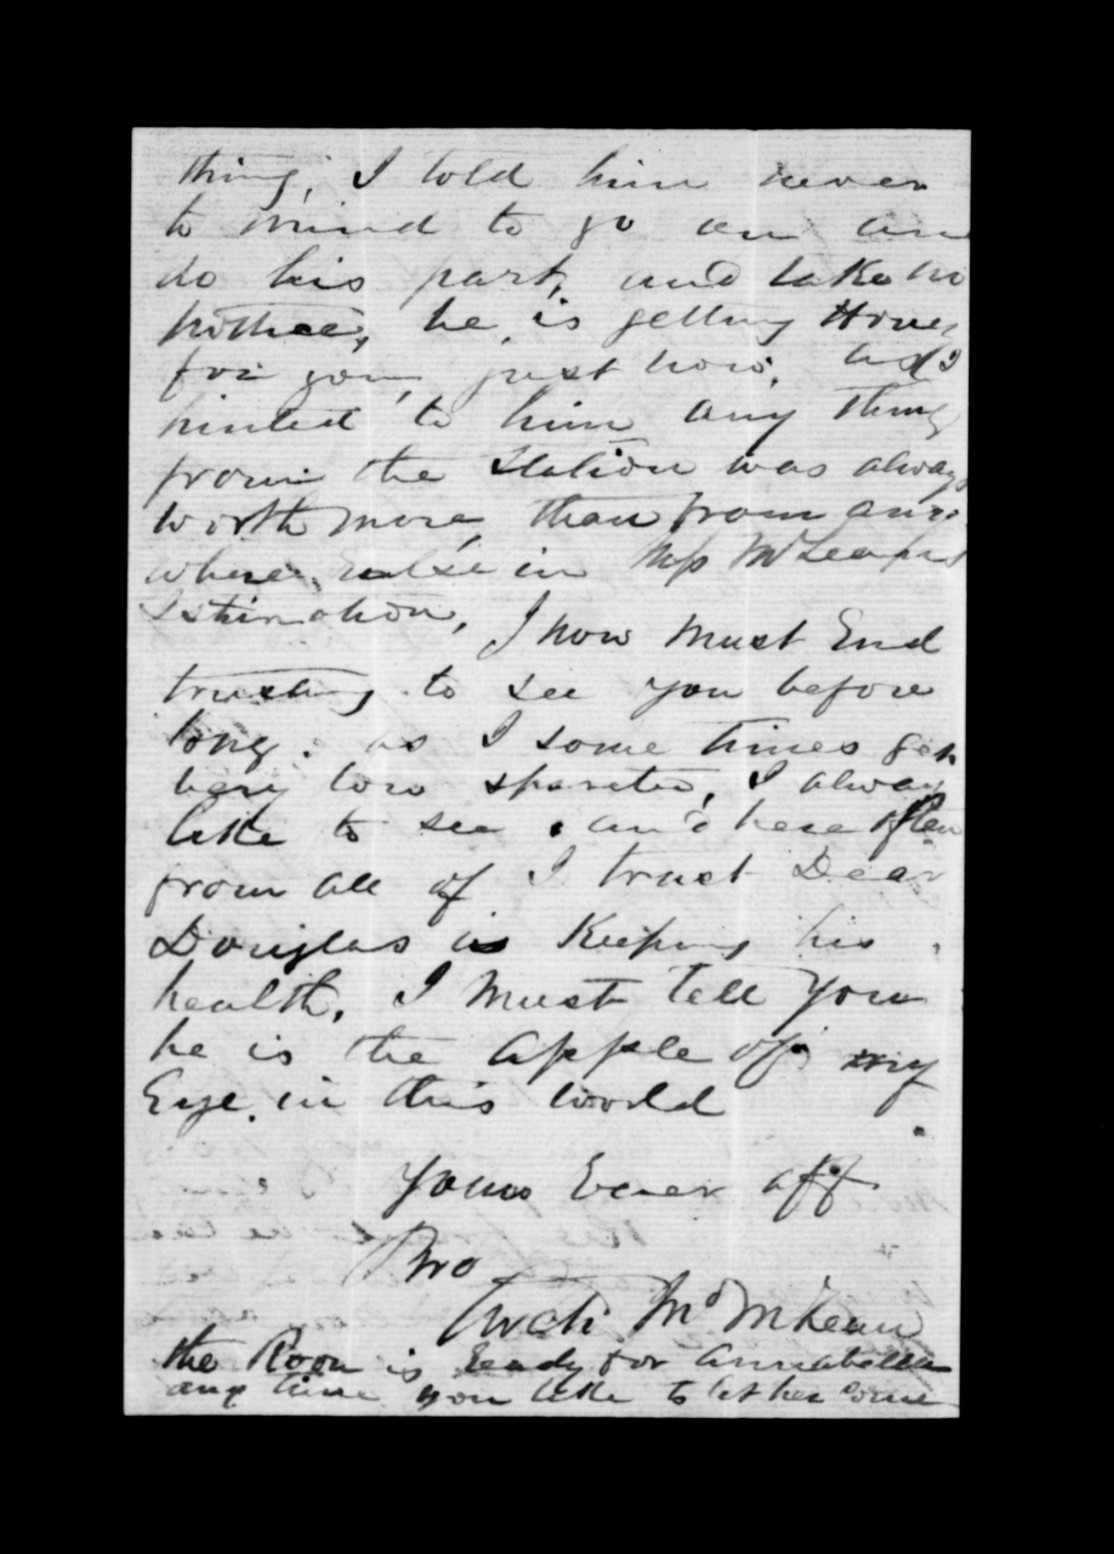 thing, I told him never
to mind to go on an
do his part, and take no
nothice, he is getting
for you, just now, and I
hinted to him any thing
from the Station was always
worth more, than from any
where else in McLeans
Istimation, I now must End
trusting to see you before
long. as I some times get
very low sparets, I alway
like to see and here often
from all of I trust Dear
Douglas is Keeping his
health, I must tell you
he is the apple of my
Eye. in this world
yours Ever aff
Bro
Archi McLean
the Room is Ready for Annabella
any time you like to let her come